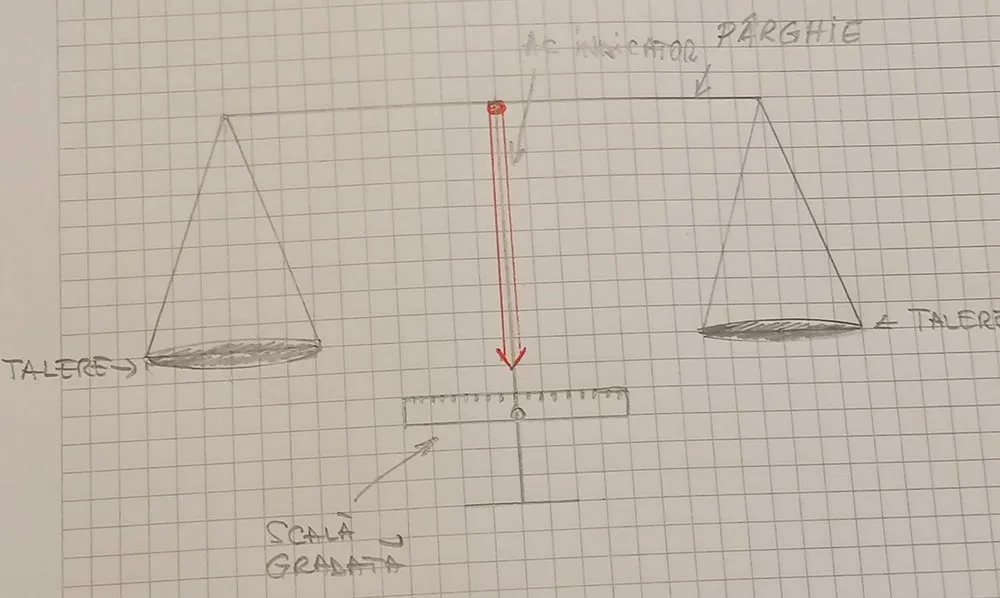 AC INDICATOR
PÂRGHIE
TALERE
TALERE
0
SCALĂ
GRADATĂ